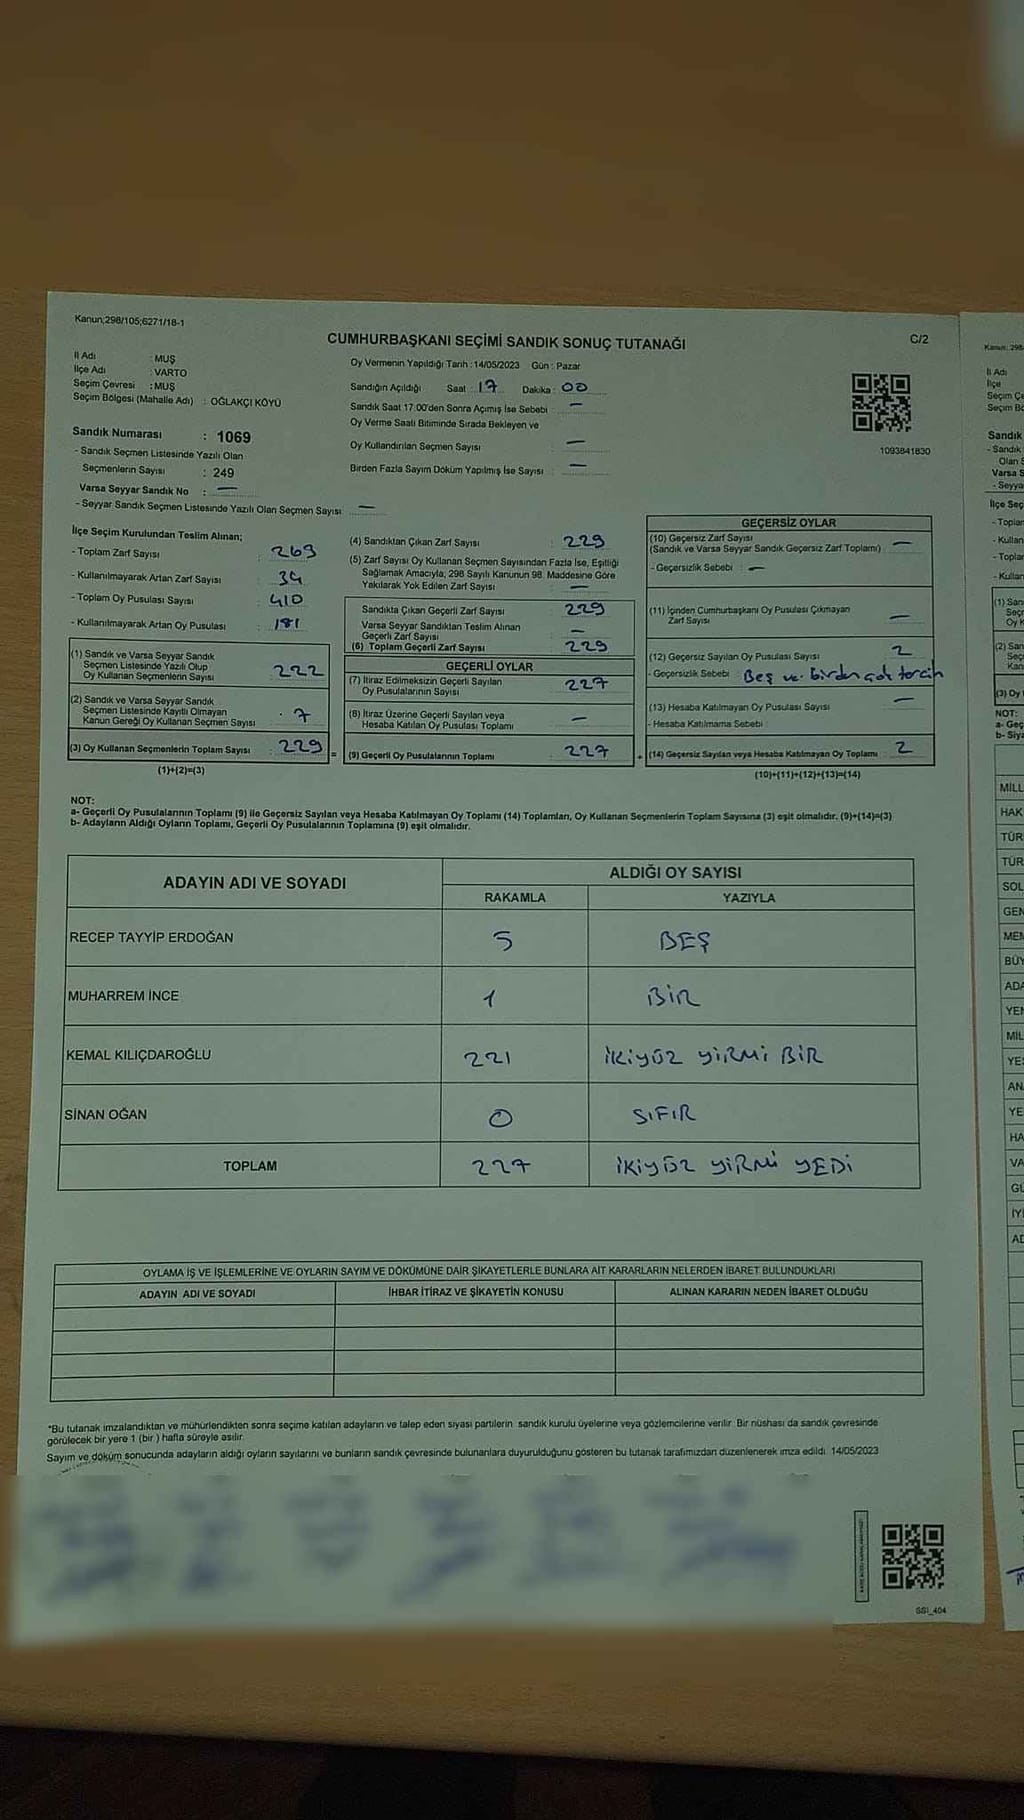 Kanun;298/105;6271/18-1
CUMHURBAŞKANI SEÇİMİ SANDIK SONUÇ TUTANAĞI
C/2
İl Adı : MUŞ
İlçe Adı : VARTO
Seçim Çevresi : MUŞ
Seçim Bölgesi (Mahalle Adı) : OĞLAKÇI KÖYÜ
Sandık Numarası : 1069
- Sandık Seçmen Listesinde Yazılı Olan
Seçmenlerin Sayısı : 249
Varsa Seyyar Sandık No : —
- Seyyar Sandık Seçmen Listesinde Yazılı Olan Seçmen Sayısı —
Oy Vermenin Yapıldığı Tarih :14/05/2023 Gün : Pazar
Sandığın Açıldığı Saat : 17 Dakika : 00
Sandık Saat 17:00'den Sonra Açımış İse Sebebi : —
Oy Verme Saati Bitiminde Sırada Bekleyen ve
Oy Kullandırılan Seçmen Sayısı : —
Birden Fazla Sayım Döküm Yapılmış İse Sayısı : —
1093841830
İlçe Seçim Kurulundan Teslim Alınan;
- Toplam Zarf Sayısı : 263
- Kullanılmayarak Artan Zarf Sayısı : 34
- Toplam Oy Pusulası Sayısı : 410
- Kullanılmayarak Artan Oy Pusulası : 181
(1) Sandık ve Varsa Seyyar Sandık
Seçmen Listesinde Yazılı Olup
Oy Kullanan Seçmenlerin Sayısı : 222
(2) Sandık ve Varsa Seyyar Sandık
Seçmen Listesinde Kayıtlı Olmayan
Kanun Gereği Oy Kullanan Seçmen Sayısı : 7
(3) Oy Kullanan Seçmenlerin Toplam Sayısı : 229 =
(1)+(2)=(3)
(4) Sandıktan Çıkan Zarf Sayısı : 229
(5) Zarf Sayısı Oy Kullanan Seçmen Sayısından Fazla İse, Eşitliği
Sağlamak Amacıyla, 298 Sayılı Kanunun 98. Maddesine Göre
Yakılarak Yok Edilen Zarf Sayısı : —
Sandıkta Çıkan Geçerli Zarf Sayısı : 229
Varsa Seyyar Sandıktan Teslim Alınan
Geçerli Zarf Sayısı : —
(6) Toplam Geçerli Zarf Sayısı : 229
GEÇERLİ OYLAR
(7) İtiraz Edilmeksizin Geçerli Sayılan
Oy Pusulalarının Sayısı : 227
(8) İtiraz Üzerine Geçerli Sayılan veya
Hesaba Katılan Oy Pusulası Toplamı : —
(9) Geçerli Oy Pusulalarının Toplamı : 227 +
GEÇERSİZ OYLAR
(10) Geçersiz Zarf Sayısı
(Sandık ve Varsa Seyyar Sandık Geçersiz Zarf Toplamı) : —
- Geçersizlik Sebebi : —
(11) İçinden Cumhurbaşkanı Oy Pusulası Çıkmayan
Zarf Sayısı : —
(12) Geçersiz Sayılan Oy Pusulası Sayısı : 2
- Geçersizlik Sebebi : Boş ve birden çok tercih
(13) Hesaba Katılmayan Oy Pusulası Sayısı : —
- Hesaba Katılmama Sebebi :
(14) Geçersiz Sayılan veya Hesaba Katılmayan Oy Toplamı : 2
(10)+(11)+(12)+(13)=(14)
NOT:
a- Geçerli Oy Pusulalarının Toplamı (9) ile Geçersiz Sayılan veya Hesaba Katılmayan Oy Toplamı (14) Toplamları, Oy Kullanan Seçmenlerin Toplam Sayısına (3) eşit olmalıdır. (9)+(14)=(3)
b- Adayların Aldığı Oyların Toplamı, Geçerli Oy Pusulalarının Toplamına (9) eşit olmalıdır.
ADAYIN ADI VE SOYADI
ALDIĞI OY SAYISI
RAKAMLA YAZIYLA
RECEP TAYYİP ERDOĞAN 5 BEŞ
MUHARREM İNCE 1 BİR
KEMAL KILIÇDAROĞLU 221 İKİYÜZ YİRMİ BİR
SİNAN OĞAN 0 SIFIR
TOPLAM 227 İKİYÜZ YİRMİ YEDİ
OYLAMA İŞ VE İŞLEMLERİNE VE OYLARIN SAYIM VE DÖKÜMÜNE DAİR ŞİKAYETLERLE BUNLARA AİT KARARLARIN NELERDEN İBARET BULUNDUKLARI
ADAYIN ADI VE SOYADI İHBAR İTİRAZ VE ŞİKAYETİN KONUSU ALINAN KARARIN NEDEN İBARET OLDUĞU
*Bu tutanak imzalandıktan ve mühürlendikten sonra seçime katılan adayların ve talep eden siyasi partilerin sandık kurulu üyelerine veya gözlemcilerine verilir. Bir nüshası da sandık çevresinde
görülecek bir yere 1 (bir ) hafta süreyle asılır.
Sayım ve döküm sonucunda adayların aldığı oyların sayılarını ve bunların sandık çevresinde bulunanlara duyurulduğunu gösteren bu tutanak tarafımızdan düzenlenerek imza edildi. 14/05/2023
SSI_404
Kanun: 298
İl Adı
İlçe
Seçim Çe
Seçim Bö
Sandık
- Sandık
Olan S
Varsa S
- Seyya
İlçe Seç
- Toplar
- Kullan
- Topla
- Kullan
(1) San
Seçr
Oy K
(2) San
Seç
Kan
(3) Oy
NOT:
a- Geç
b- Siya
MİLL
HAK
TÜR
TÜR
SOL
GEN
MEM
BÜY
ADA
YEN
MİL
YE
AN
YE
HA
VA
GÜ
İYİ
AD